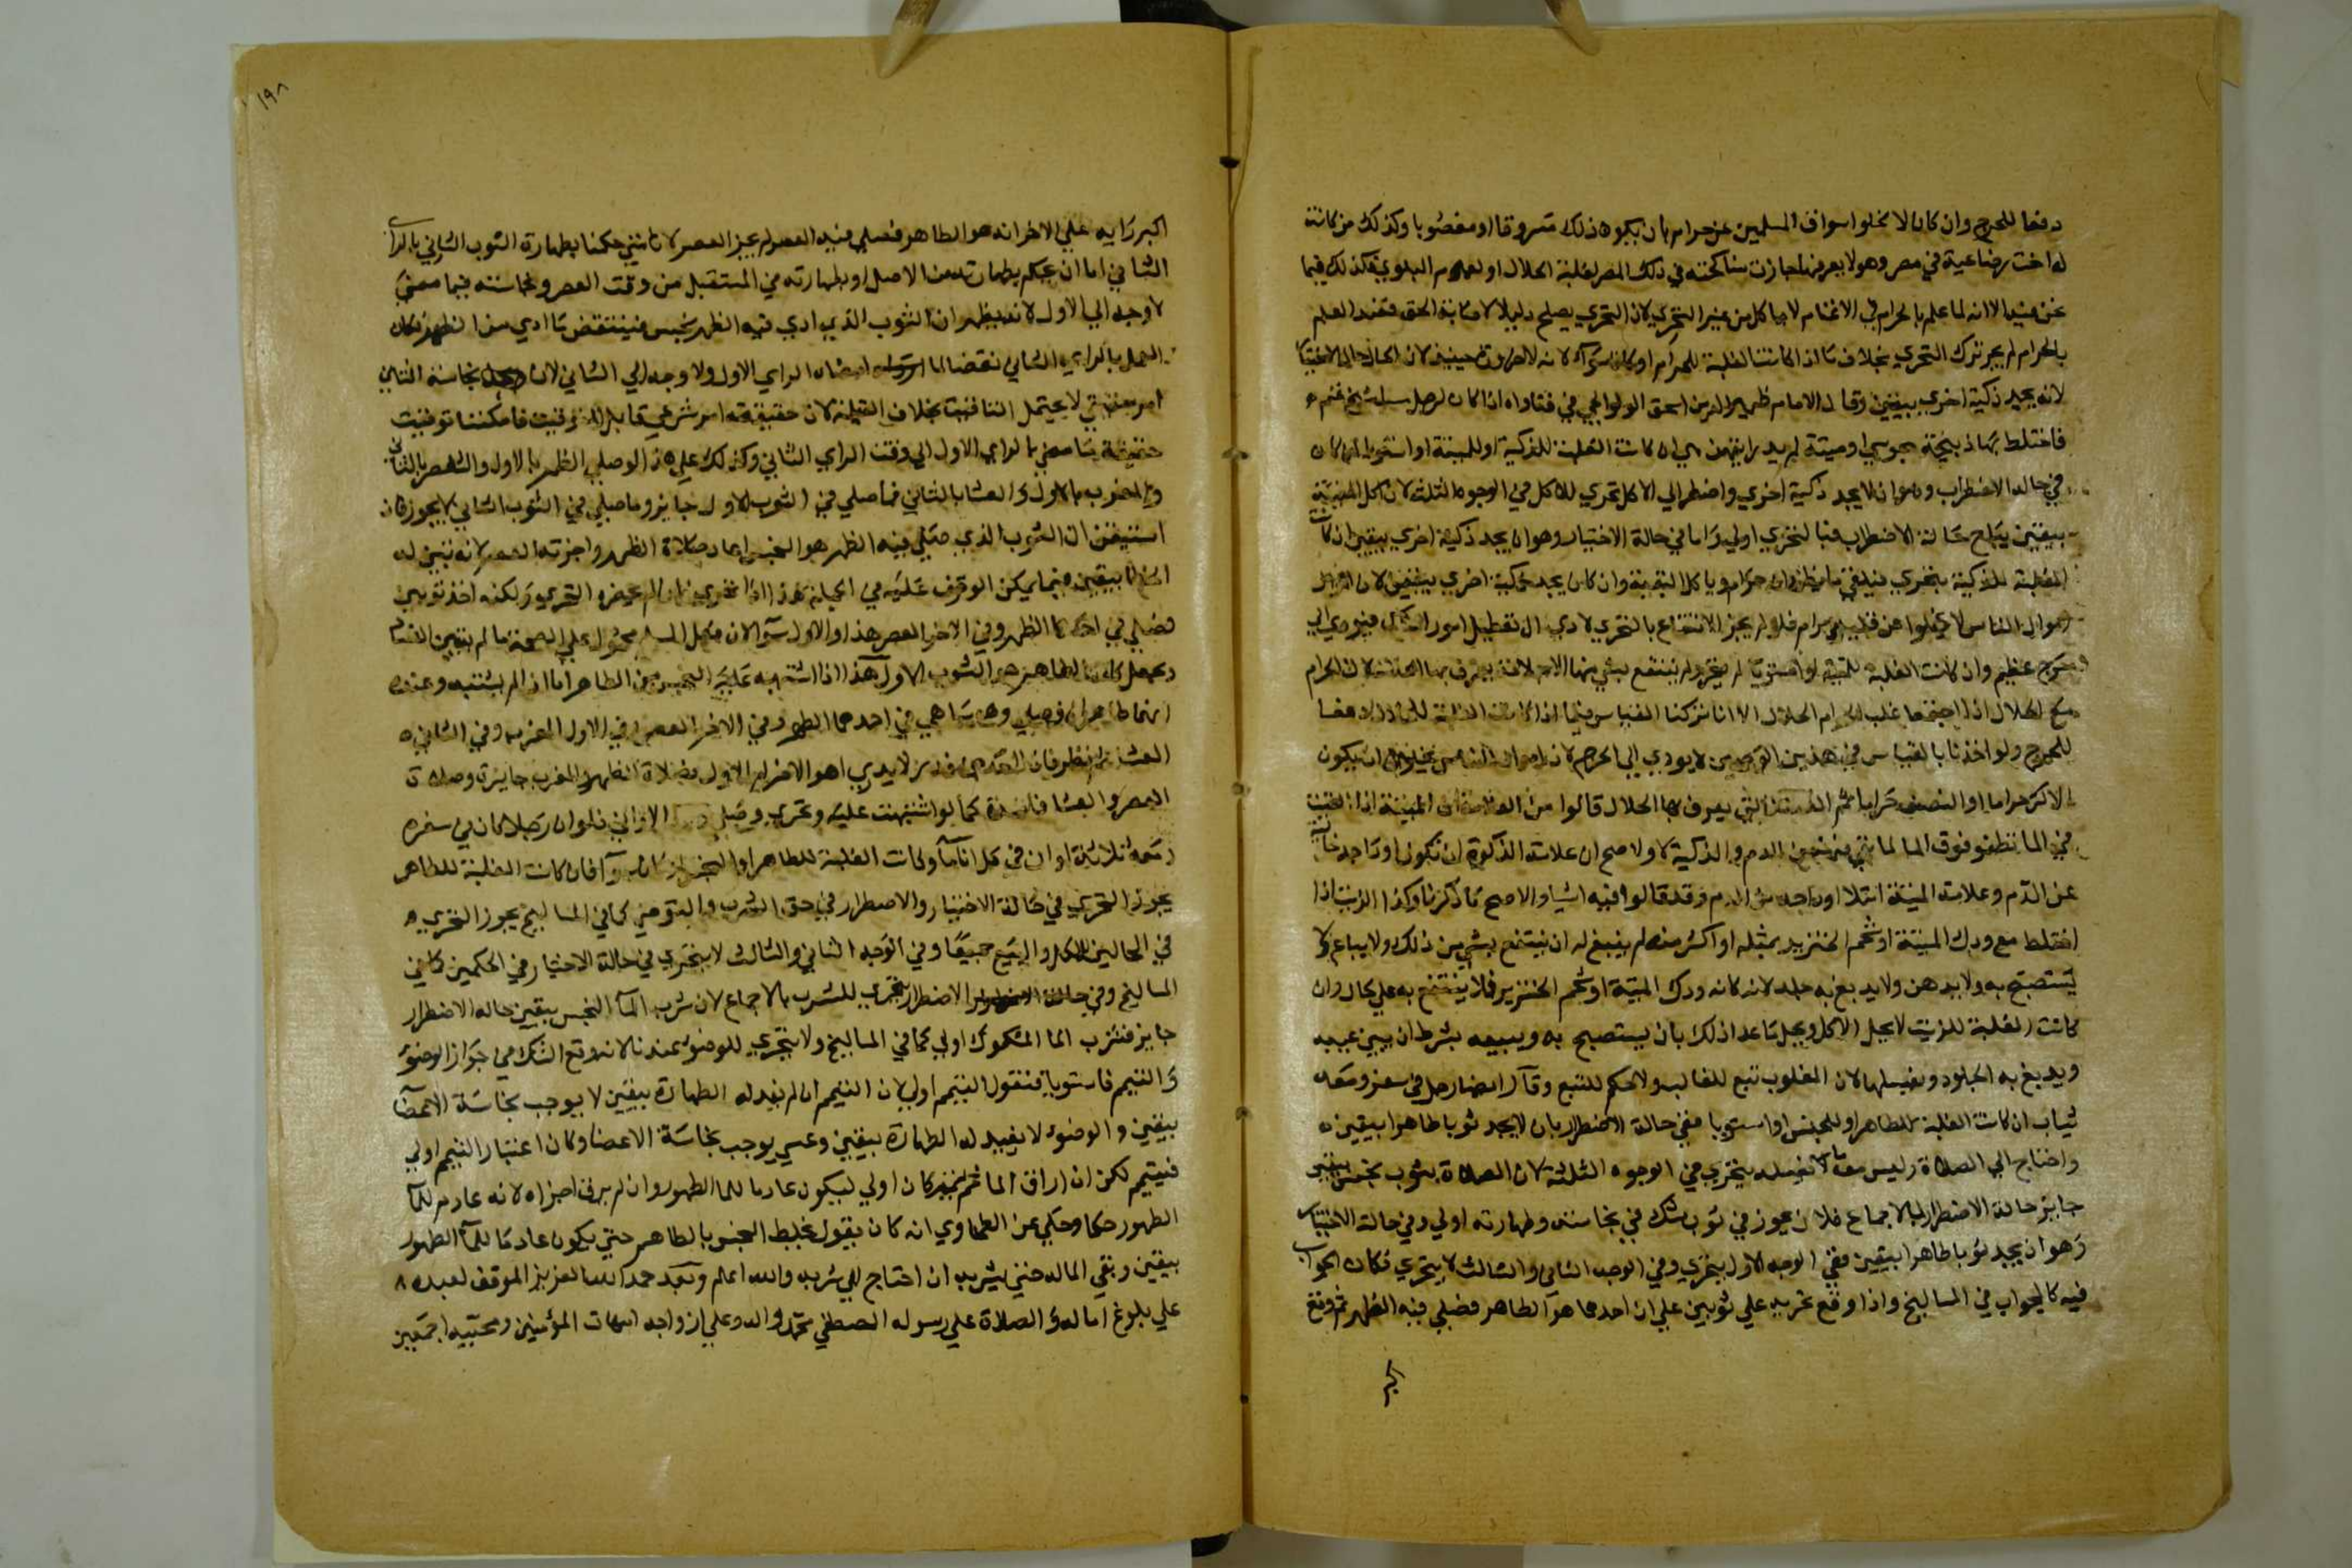 دفعا للحرج وان كان لا تخلوا اسواق المسلمين عن حرام بان يكون ذلك مسروقا او مغصوبا وكذلك من كانت
له اخت رضاعية في مصر وهو لا يعرفها جازت مناكحته في ذلك المصر لغلبة الحلال او لعموم البلوي فكذلك فيما
نحن فيه الا انه لما علم بالحرام في الاغنام لا ياكل من غير التحري لان التحري يصلح دليلا لاصابة الحق فعند العلم
بالحرام لم يجز ترك التحري بخلاف ما اذا كانت الغلبة للحرام او كانا سوآء لانه لا ضرورة حينئذ لان الحال حال الاختيا
لانه يجد ذكية اخري بيقين وقال الامام ظهير الدين اسحق الولوالجي في فتاواه اذا كان لرجل مساليخ غنم
فاختلط بها ذبيحة مجوسي او ميتة لم يدر ايتهن هي ان كانت الغلبة للذكية او للميتة او استويا ان كان
في حالة الاضطراب وهو ان لا يجد ذكية اخري واضطر الي الاكل تحري للاكل في الوجوه الثلثة لان اكل الميتة
بيقين يباح حالة الاضطراب فبالتحري اولي واما في حالة الاختيار وهو ان يجد ذكية اخري بيقين ان كانت
الغلبة للذكية يتحري فيلقي ما يظن انه حرام وياكل البقية وان كان يجد ذكية اخري بيقين لان
اموال الناس لا تخلوا عن قليل حرام فلو لم يجز الانتفاع بالتحري لادي الي تعطيل امور الناس فيؤدي الي
حرج عظيم وان كانت الغلبة للميتة او استويا لم يتحر ولم ينتفع بشي منها الا بعلامة يعرف بها الحلال لان الحرام
مع الحلال اذا اجتمعا غلب الحرام الحلال الا انا تركنا القياس فيما اذا كانت الغلبة للحلال دفعا
للحرج ولو اخذنا بالقياس في هذين الوجهين لا يودي الي الحرج لان اموال الناس يخلوا ان يكون
الاكثر حراما او النصف حراما ثم العلامة التي يعرف بها الحلال قالوا من العلامة ان الميتة اذا القيت
في الما تطفو فوق الما لما بقي فيه من الدم والذكية لا والاصح ان علامة الذكوة ان تكون اوداجه خالية
عن الدم وعلامة الميتة امتلا اوداجه من الدم وقد قالوا فيه اشيا والاصح ما ذكرنا وكذا الزيت اذا
اختلط مع ودك الميتة او شحم الخنزير بمثله او اكثر منه لم ينبغ له ان ينتفع بشي من ذلك ولا يباع ولا
يستصبح به ولا يدهن ولا يدبغ به جلد لانه كانه ودك الميتة او شحم الخنزير فلا ينتفع به علي حال وان
كانت الغلبة للزيت لا يحل الاكل ويحل ما عدا ذلك بان يستصبح به ويبيعه بشرط ان يبين عيبه
ويدبغ به الجلود ويغسلها لان المغلوب تبع للغالب ولا حكم للتبع وقال ايضا رجل في سفر ومعه
ثياب ان كانت الغلبة للطاهر او للنجس او استويا ففي حالة الاضطرار بان لا يجد ثوبا طاهرا بيقين
واحتاج الي الصلاة وليس معه ما يغسله يتحري في الوجوه الثلثة لان الصلاة بثوب نجس بيقين
جايز حالة الاضطرار بالاجماع فلان يجوز في ثوب شك في نجاسته وطهارته اولي وفي حالة الاختيار
وهو ان يجد ثوبا طاهرا بيقين ففي الوجه الاول يتحري وفي الوجه الثاني والثالث لا يتحري فكان الجواب
فيه كالجواب في المساليخ واذا وقع تحريه علي ثوبين علي ان احدهما هو الطاهر فصلي فيه الظهر ثم وقع
اكبر
١٩٨
اكبر رايه علي الاخر انه هو الطاهر فصلي فيه العصر لم يجز العصر لانا متي حكمنا بطهارة الثوب الثاني بالراي
الثاني اما ان يحكم بطهارته من الاصل او بطهارته في المستقبل من وقت العصر ونجاسته فيما مضي
لا وجه الي الاول لانه يظهر ان الثوب الذي ادي فيه الظهر نجس فينتقض ما ادي من الظهر فكان
العمل بالراي الثاني نقضا لما امضاه الراي الاول ولا وجه الي الثاني لان نجاسة الثاني
امر حقيقي لا يحتمل التناقض بخلاف القبلة لان حقيقته امر شرعي قابل للتوقيت فامكننا توقيت
حقيقة ما مضي بالراي الاول الي وقت الراي الثاني وكذلك علي هذا لو صلي الظهر بالاول والعصر بالثاني
والمغرب بالاول والعشا بالثاني فما صلي في الثوب الاول جايز وما صلي في الثوب الثاني لا يجوز فان
استيقن ان الثوب الذي صلي فيه الظهر هو النجس اعاد صلاة الظهر واجزته العصر لانه تبين له
الخطا بيقين فيما يمكن الوقوف عليه في الجملة هذا اذا تحري فان لم يحضره التحري ولكنه اخذ ثوبين
فصلي في احدهما الظهر وفي الاخر العصر هذا والاول سوآء لان فعل المسلم محمول علي الصحة ما لم يتبين الفساد
ويجعل كان الطاهر هو الثوب الاول هذا اذا اشتبه عليه النجس من الطاهر اما اذا لم يشتبه وعنده
انهما طاهران فصلي وهو ساهي في احدهما الظهر وفي الاخر العصر وفي الاول المغرب وفي الثاني
العشا ثم نظر فاذا في احدهما قذر لا يدري اهو الاخر ام الاول فصلاة الظهر والمغرب جايزة وصلاة
العصر والعشا فاسدة كما لو اشتبهت عليه وتحري وصلي الاواني فلو ان رجلا كان في سفره
ومعه ثلاثة اوان في كل اناء مآ وكانت الغلبة للطاهر او للنجس او كانا سوآء فان كانت الغلبة للطاهر
يجوز التحري في حالة الاختيار والاضطرار في حق الشرب والتوضي كما في المساليخ يجوز التحري
في الحالين للاكل والبيع جميعا وفي الوجه الثاني والثالث لا يتحري في حالة الاختيار في الحكمين كما في
المساليخ وفي حالة الاضطرار يتحري للشرب بالاجماع لان شرب المآ النجس بيقين حالة الاضطرار
جايز فشرب الما المشكوك اولي كما في المساليخ ولا يتحري للوضوء عندنا لانه وقع الشك في جواز الوضوء
والتيمم فاستويا فنقول التيمم اولي لان التيمم ان لم يفد له الطهارة بيقين لا يوجب نجاسة الاعضآ
بيقين والوضوء لا يفيد له الطهارة بيقين وعسي يوجب نجاسة الاعضا وكان اعتبار التيمم اولي
فيتيمم لكن ان اراق الما ثم تيمم كان اولي ليكون عادما للما الطهور وان لم يرق اجزاه لانه عادم للمآ
الطهور حكما وحكي عن الطحاوي انه كان يقول يخلط النجس بالطاهر حتي يكون عادما للمآ الطهور
بيقين وبقي الما له حتي يشربه ان احتاج الي شربه والله اعلم وبعد حمد الله العزيز الموفق لعبده
علي بلوغ اماله والصلاة علي رسوله المصطفي محمد واله وعلي ازواجه امهات المؤمنين ومحبيه اجمعين